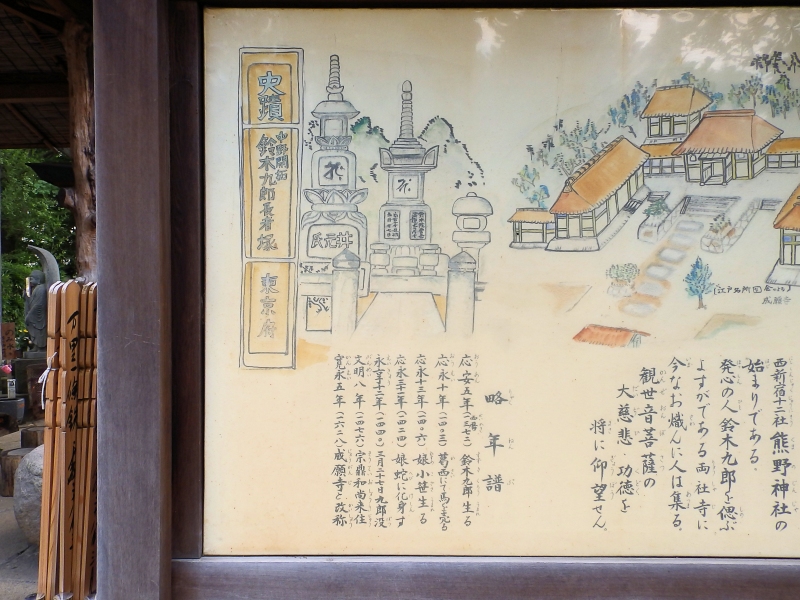 西新宿十二社熊野神社の
始まりである。
発心の人鈴木九郎を偲ぶ
よすがである両社寺に
今なお熾んに人は集る。
観世音菩薩の
大慈悲功徳を
将に仰望せん。
略年譜
りゃくねんぷ
応安五年(一三七二)鈴木九郎生る
応永十年(一四〇三)葛西にて馬を売る
応永十三年(一四〇六)娘小笹生る
応永三十一年(一四二四)娘蛇に化身す
永享十二年(一四四〇)三月二十七日九郎没
文明八年(一四七六)宗鼎和尚来住
寛永五年(一六二八)成願寺と改称
史蹟
中野開拓
鈴木九郎長者塚
東京府
井元氏
(江戸名所図会より)
成願寺